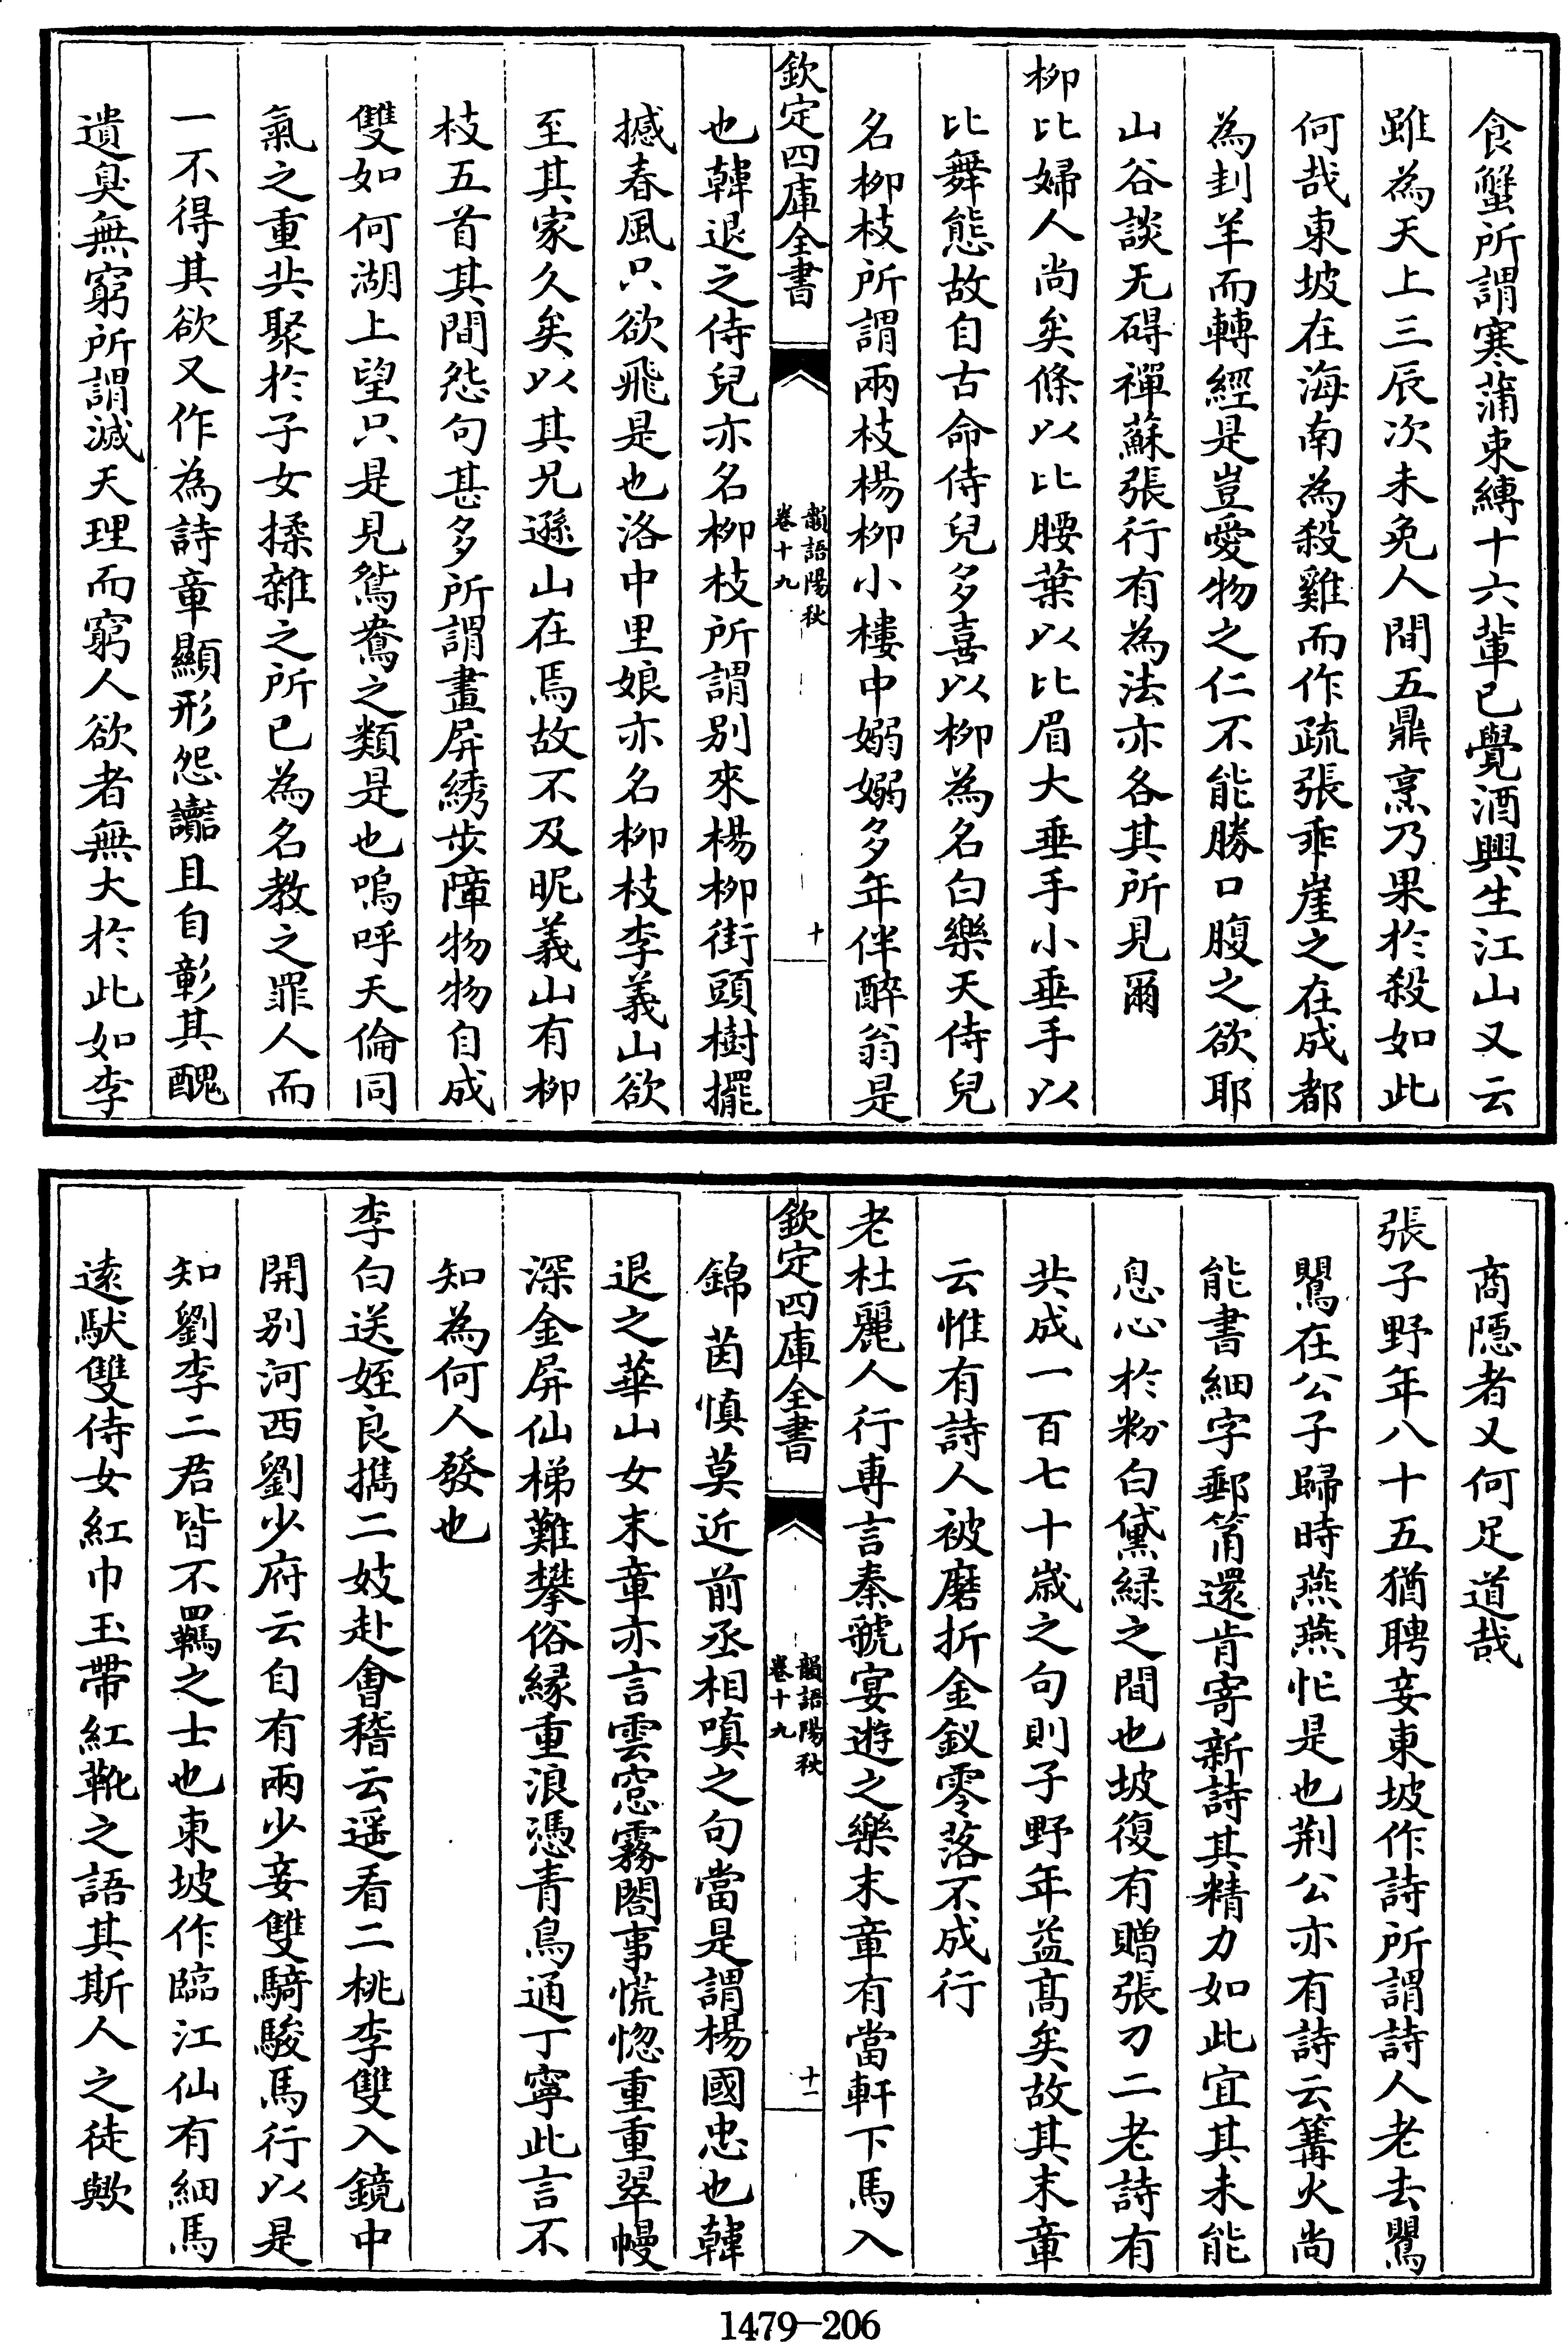 食蟹所謂寒蒲束縛十六輩已覺酒興生江山又云
雖為天上三辰次未免人間五鼎烹乃果於殺如此
何哉東坡在海南為殺雞而作疏張乖崖之在成都
為刲羊而轉經是豈愛物之仁不能勝口腹之欲耶
山谷談无碍禪蘇張行有為法亦各其所見爾
柳比婦人尚矣條以比腰葉以比眉大垂手小垂手以
比舞態故自古命侍兒多喜以柳為名白樂天侍兒
名柳枝所謂兩枝楊柳小樓中嫋嫋多年伴醉翁是
欽定四庫全書
韻語陽秋
卷十九
十
也韓退之侍兒亦名柳枝所謂別來楊柳街頭樹擺
撼春風只欲飛是也洛中里娘亦名柳枝李義山欲
至其家久矣以其兄遜山在焉故不及昵義山有柳
枝五首其間怨句甚多所謂畫屏綉步障物物自成
雙如何湖上望只是見鴛鴦之類是也嗚呼天倫同
氣之重共聚於子女揉雜之所已為名教之罪人而
一不得其欲又作為詩章顯形怨讟且自彰其醜
遺臭無窮所謂滅天理而窮人欲者無大於此如李
商隱者又何足道哉
張子野年八十五猶聘妾東坡作詩所謂詩人老去鸎
鸎在公子歸時燕燕忙是也荆公亦有詩云篝火尚
能書細字郵筩還肯寄新詩其精力如此宜其未能
息心於粉白黛緑之間也坡復有贈張刁二老詩有
共成一百七十歲之句則子野年益髙矣故其末章
云惟有詩人被磨折金釵零落不成行
老杜麗人行專言秦虢宴遊之樂末章有當軒下馬入
欽定四庫全書
韻語陽秋
卷十九
十一
錦茵慎莫近前丞相嗔之句當是謂楊國忠也韓
退之華山女末章亦言雲窓霧閣事慌惚重重翠幔
深金屏仙梯難攀俗縁重浪憑青鳥通丁寧此言不
知為何人發也
李白送姪良攜二妓赴會稽云遥看二桃李雙入鏡中
開别河西劉少府云自有兩少妾雙騎駿馬行以是
知劉李二君皆不羈之士也東坡作臨江仙有細馬
遠馱雙侍女紅巾玉帶紅靴之語其斯人之徒歟
1479-206